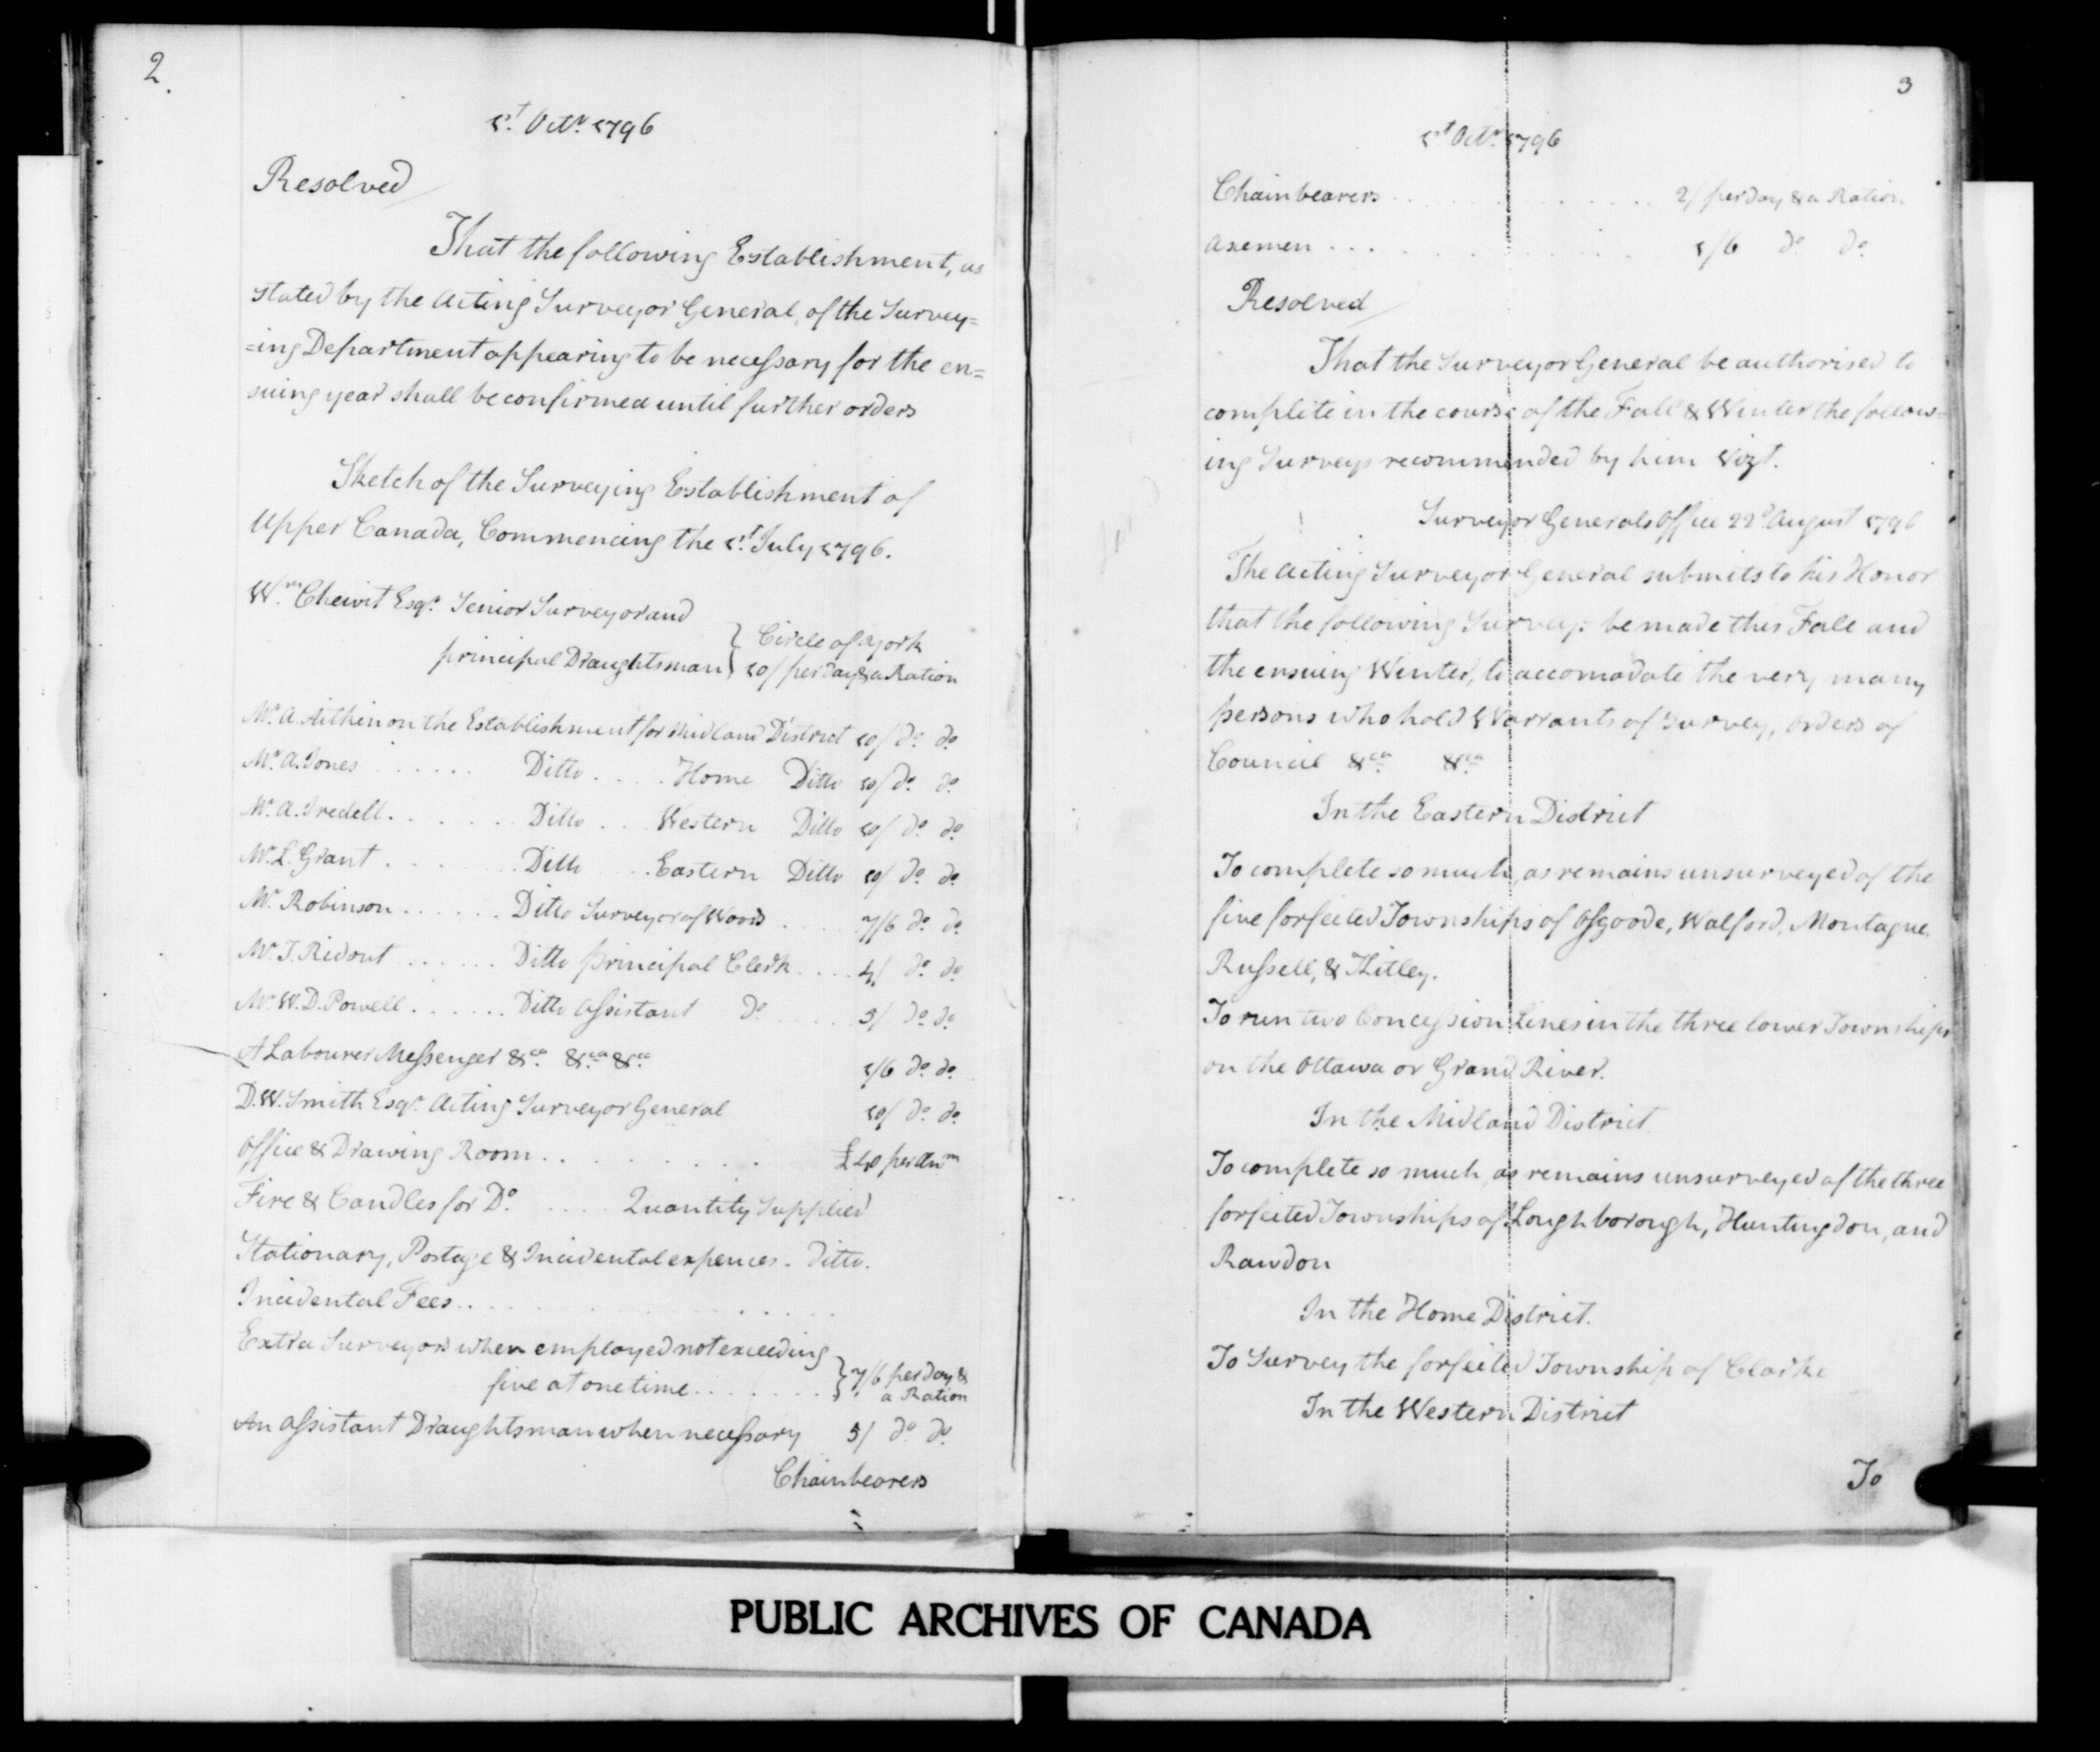 2.
1st. Octr. 1796
Resolved
That the following Establishment, as
stated by the Acting Surveyor General, of the Survey=
=ing Department appearing to be necessary for the en=
suing year shall be confirmed until further orders
Sketch of the Surveying Establishment of
Upper Canada, Commencing the 1st. July 1796.
Wm. Chewit Esqr. Senior Surveyor and
principal Draughtsman } Circle of York
10/ per day & a Ration
Mr. A. Aitkin on the Establishment for Midland District 10/ do. do.
Mr. A. Jones ...... Ditto .... Home Ditto 10/ do. do.
Mr. A. Iredell ...... Ditto ... Western Ditto 10/ do. do.
Mr. L. Grant ...... Ditto .... Eastern Ditto 10/ do. do.
Mr. Robinson ...... Ditto Surveyor of Woods .... 7/6 do. do.
Mr. T. Ridout ...... Ditto principal Clerk .... 4/ do. do.
Mr. W. D. Powell ...... Ditto Assistant do .... 3/ do. do.
A Labourer Messenger &ca. &ca. &ca. 1/6 do. do.
D. W. Smith Esqr. Acting Surveyor General 10/ do. do.
Office & Drawing Room ........ £40 per Anm
Fire & Candles for Do. .... Quantity Supplied
Stationary, Postage & Incidental expences. Ditto.
Incidental Fees ........
Extra Surveyors when employed not exceeding
five at one time ....... } 7/6 per day &
a Ration
An Assistant Draughtsman when necessary 5/ do. do.
Chainbearers
3
1st Octr. 1796
Chainbearers ............ 2/ per day & a Ration
Axemen ............ 1/6 do do.
Resolved
That the Surveyor General be authorised to
complete in the course of the Fall & Winter the follow=
ing Surveys recommended by him Vizt.
Surveyor Generals Office 22d August 1796
The Acting Surveyor General submits to his Honor
that the following Surveys be made this Fall and
the ensuing Winter, to accomodate the very many
persons who hold Warrants of Survey, Orders of
Council &ca. &ca.
In the Eastern District
To complete so much, as remains unsurveyed of the
five forfeited Townships of Osgoode, Walford, Montague,
Russell, & Kitley.
To run two Concession Lines in the three lower Townships
on the Ottawa or Grand River.
In the Midland District
To complete so much, as remains unsurveyed of the three
forfeited Townships of Loughborough, Huntingdon, and
Rawdon
In the Home District.
To Survey the forfeited Township of Clarke
In the Western District
To
PUBLIC ARCHIVES OF CANADA